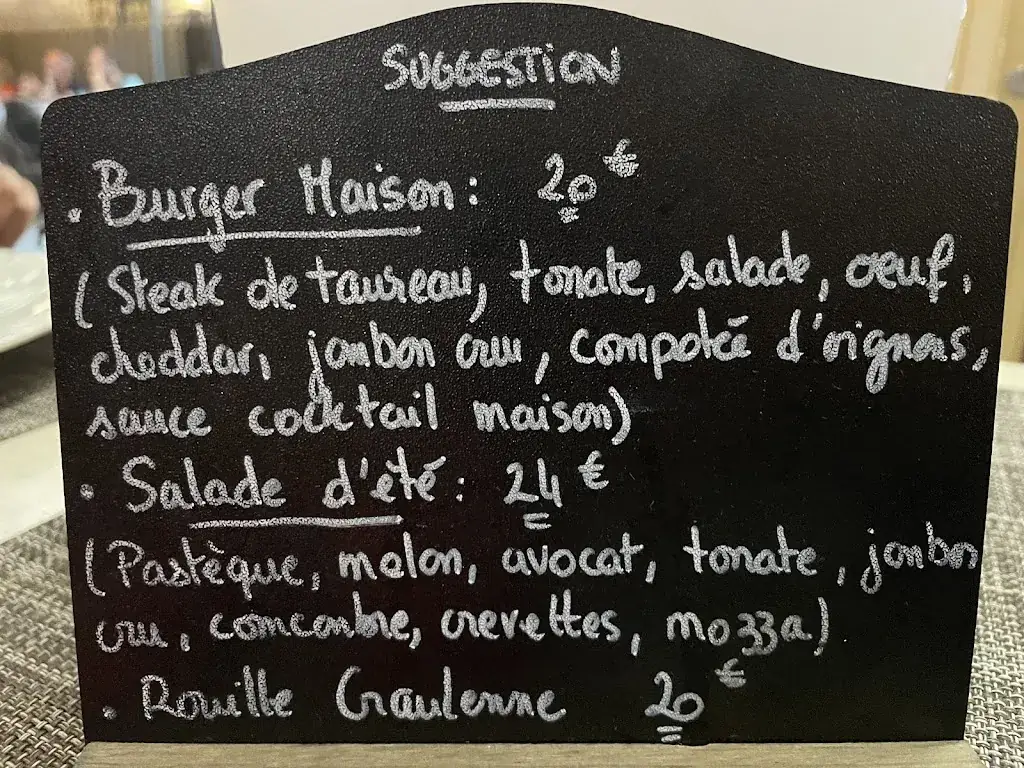 SUGGESTION
• Burger Maison : 20 €
(Steak de taureau, tomate, salade, oeuf,
cheddar, jambon cru, compoté d'oignons,
sauce cocktail maison)
• Salade d'été : 24 €
(Pastèque, melon, avocat, tomate, jambon
cru, concombre, crevettes, mozza)
• Rouille Graulenne 20 €